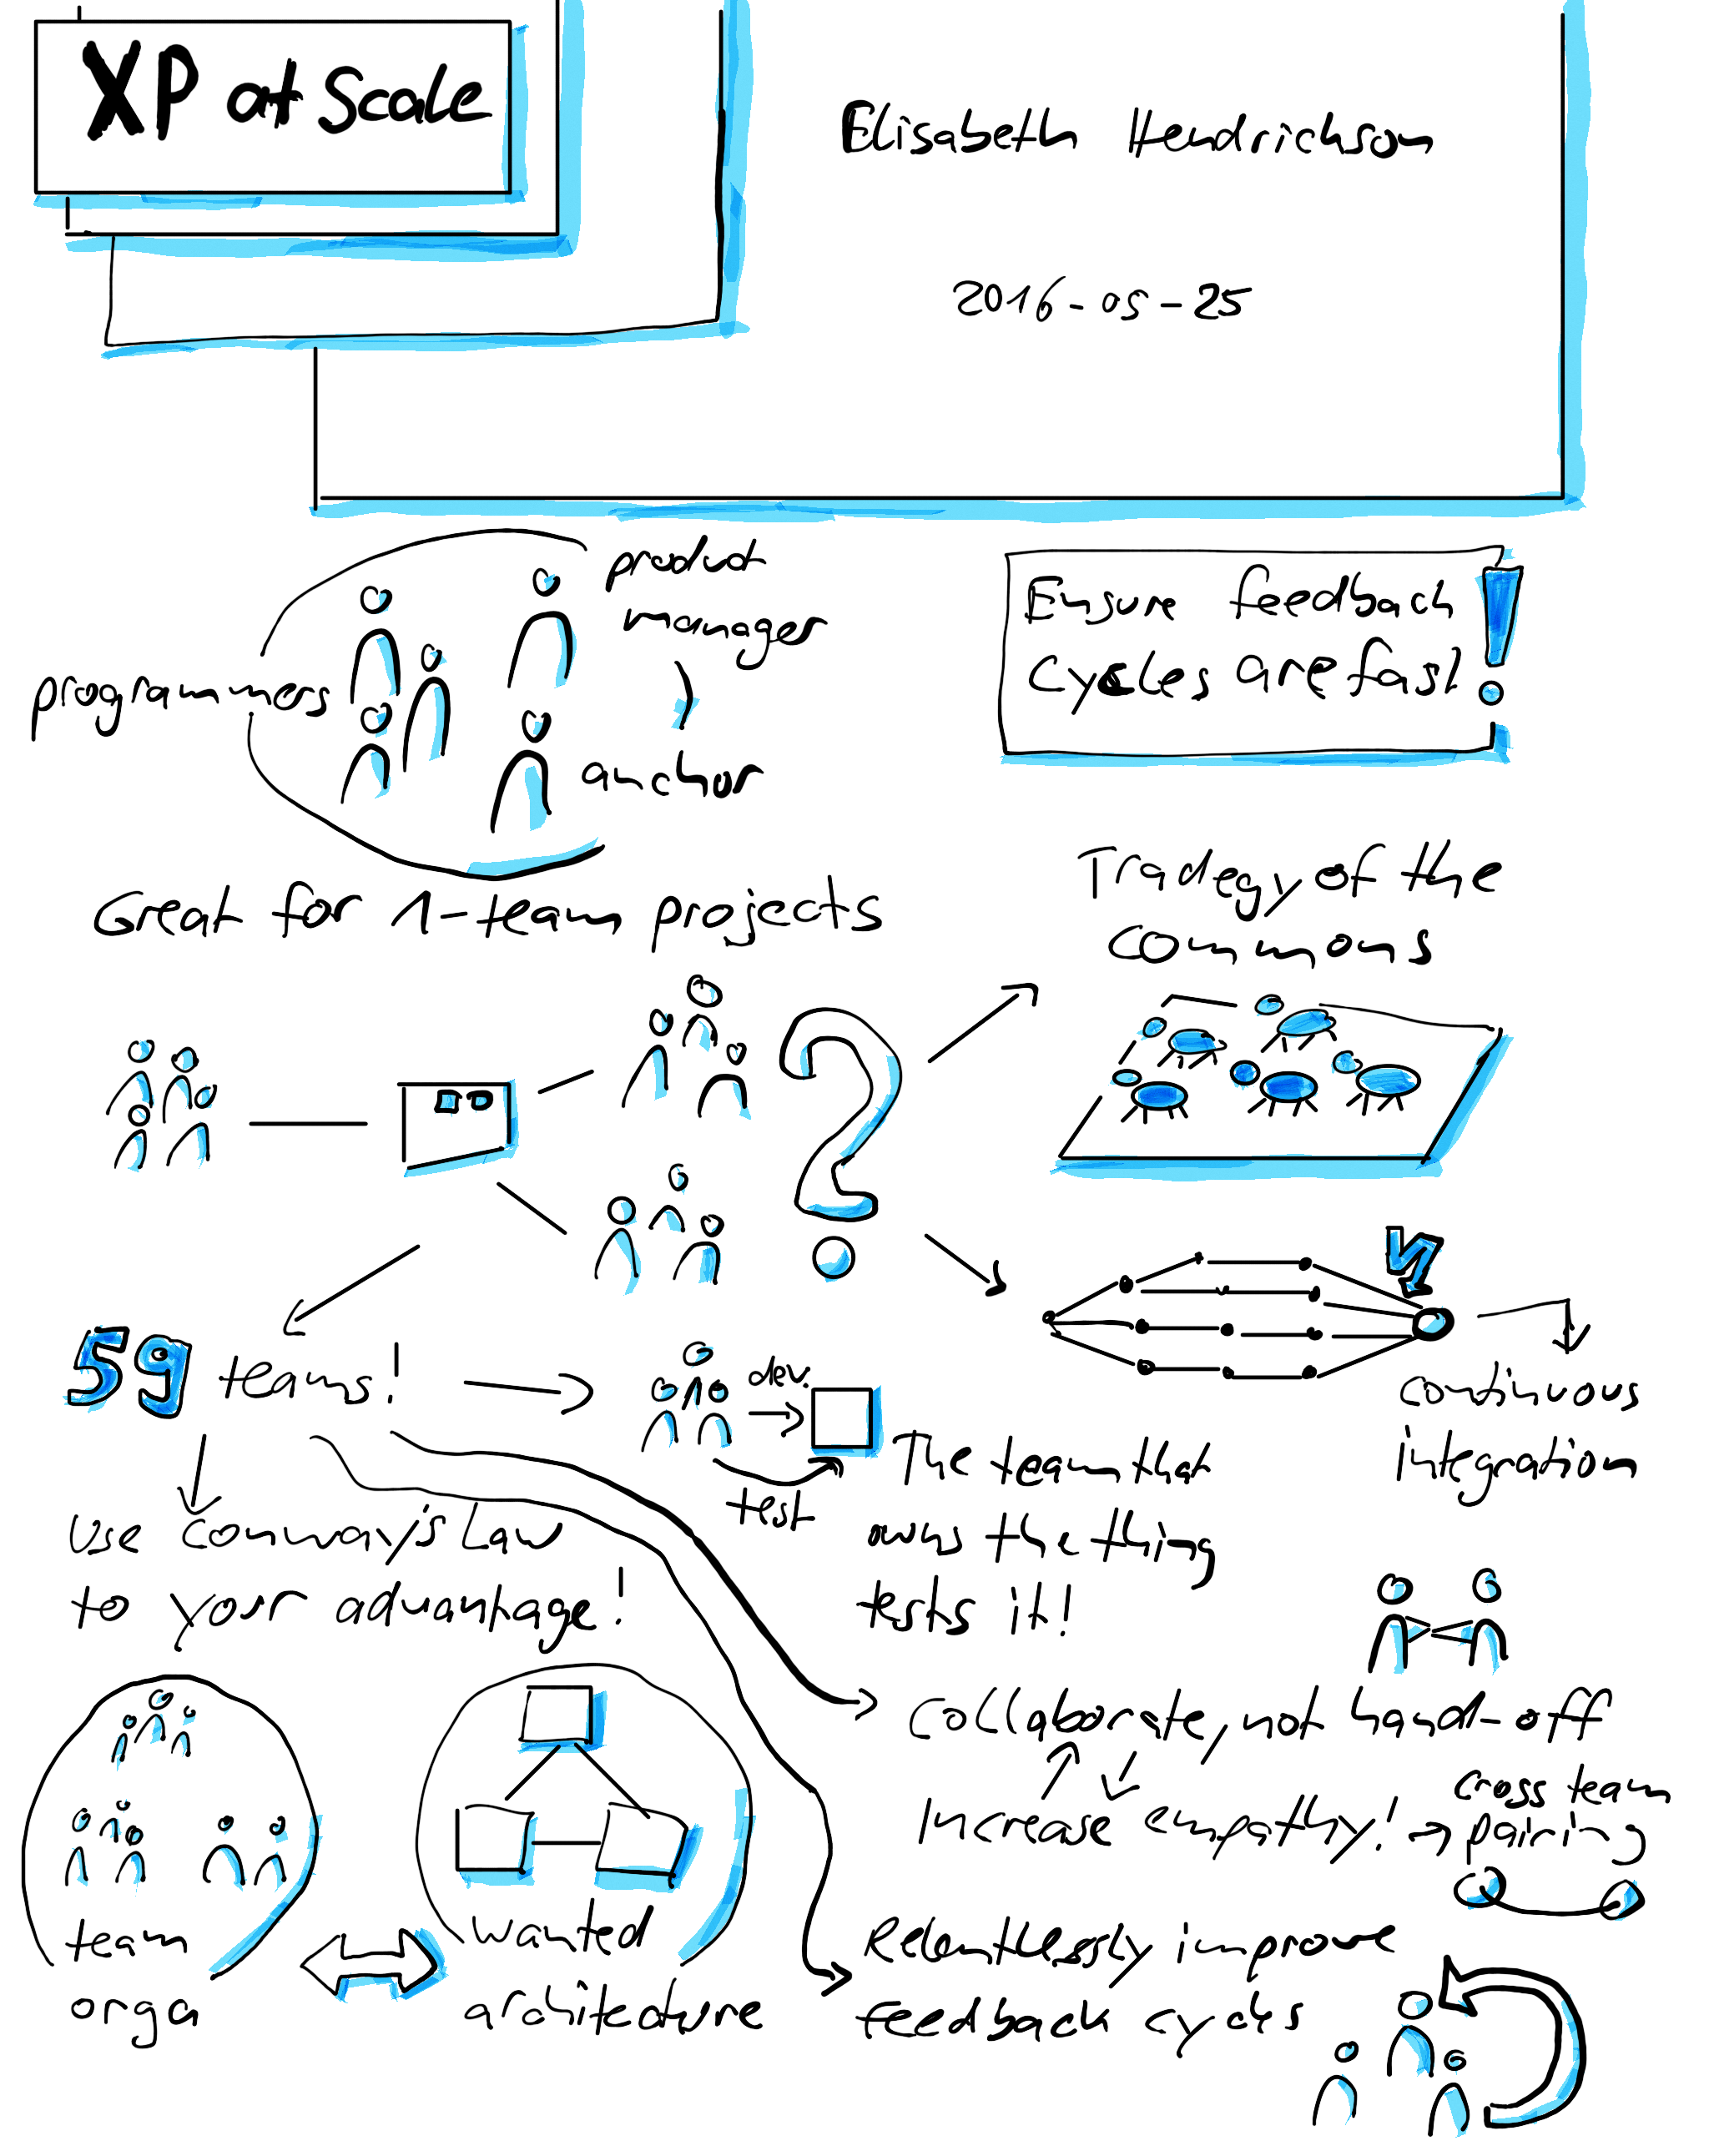 XP at Scale
Elisabeth Hendrickson
2016-05-25
product
manager
programmers
anchor
Ensure feedback
cycles are fast!
Great for 1-team projects
Tradegy of the
commons
?
59 teams!
dev.
test
The team that
owns the thing
tests it!
continuous
integration
Use Conway's Law
to your advantage!
Collaborate, not hand-off
Increase empathy!
cross team
pairing
team
orga
wanted
architecture
Relentlessly improve
feedback cycles